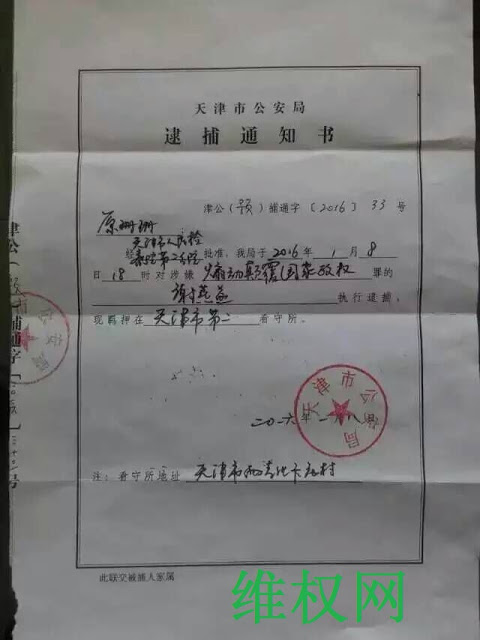 天津市公安局
逮捕通知书
津公（预）捕通字〔2016〕33号
原珊珊
天津市人民检
经察院第二分院批准，我局于2016年1月8
日18时对涉嫌煽动颠覆国家政权罪的
谢燕益执行逮捕，
现羁押在天津市第二看守所。
天津市公安局
二〇一六年一月八
注：看守所地址天津市村
此联交被捕人家属
津公捕通字号
维权网